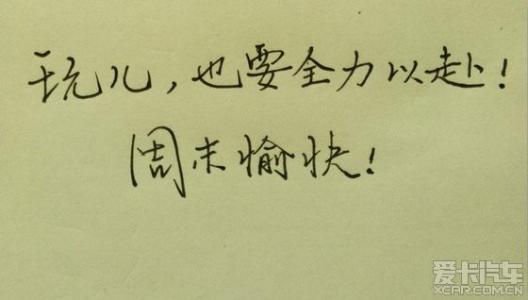 玩儿，也要全力以赴！
周末愉快！
爱卡汽车
XCAR.COM.CN